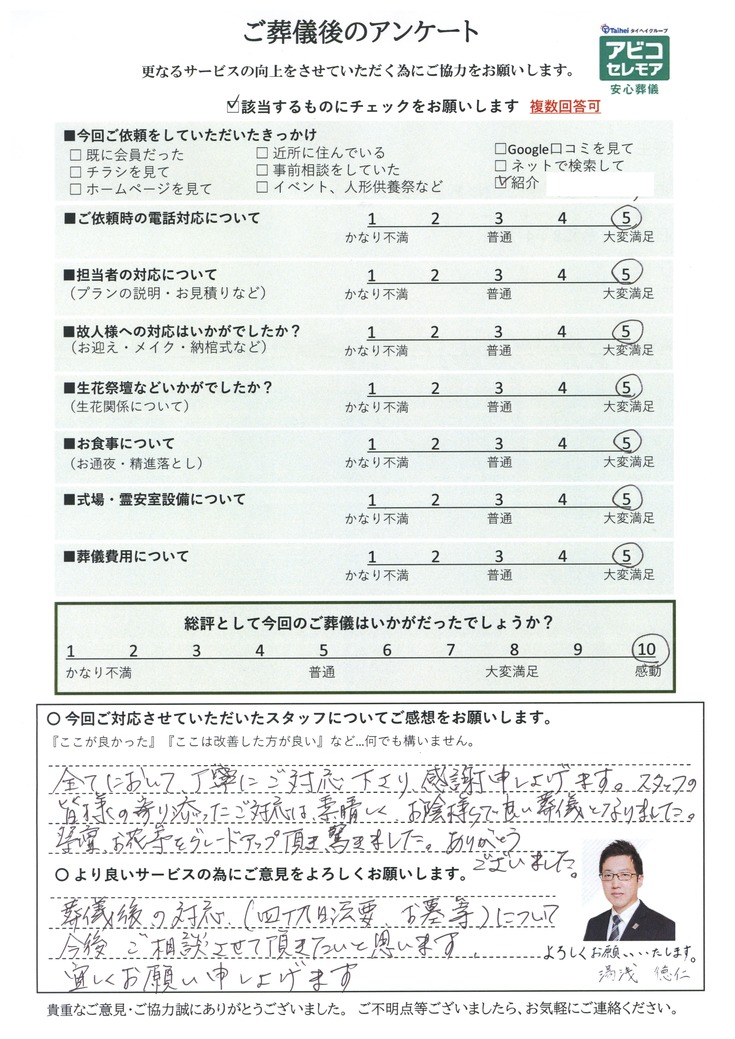 ご葬儀後のアンケート
Taihei タイヘイグループ
アビコ
セレモア
安心葬儀
更なるサービスの向上をさせていただく為にご協力をお願いします。
☑該当するものにチェックをお願いします 複数回答可
■今回ご依頼をしていただいたきっかけ
□ 既に会員だった □ 近所に住んでいる □Google口コミを見て
□ チラシを見て □ 事前相談をしていた □ ネットで検索して
□ ホームページを見て □ イベント、人形供養祭など ☑紹介
■ご依頼時の電話対応について 1 2 3 4 5
かなり不満 普通 大変満足
■担当者の対応について 1 2 3 4 5
（プランの説明・お見積りなど） かなり不満 普通 大変満足
■故人様への対応はいかがでしたか？ 1 2 3 4 5
（お迎え・メイク・納棺式など） かなり不満 普通 大変満足
■生花祭壇などいかがでしたか？ 1 2 3 4 5
（生花関係について） かなり不満 普通 大変満足
■お食事について 1 2 3 4 5
（お通夜・精進落とし） かなり不満 普通 大変満足
■式場・霊安室設備について 1 2 3 4 5
かなり不満 普通 大変満足
■葬儀費用について 1 2 3 4 5
かなり不満 普通 大変満足
総評として今回のご葬儀はいかがだったでしょうか？
1 2 3 4 5 6 7 8 9 10
かなり不満 普通 大変満足 感動
〇 今回ご対応させていただいたスタッフについてご感想をお願いします。
『ここが良かった』『ここは改善した方が良い』など…何でも構いません。
全てにおいて丁寧にご対応下さり、感謝申し上げます。スタッフの
皆様の寄り添ったご対応は素晴しく、お陰様で良い葬儀となりました。
祭壇、お花等をグレードアップ頂き驚きました。ありがとう
ございました。
〇 より良いサービスの為にご意見をよろしくお願いします。
葬儀後の対応、（四十九日法要、お墓等）について
今後、ご相談させて頂きたいと思います。
宜しくお願い申し上げます
よろしくお願いいたします。
湯浅 徳仁
貴重なご意見・ご協力誠にありがとうございました。 ご不明点等ございましたら、お気軽にご連絡ください。